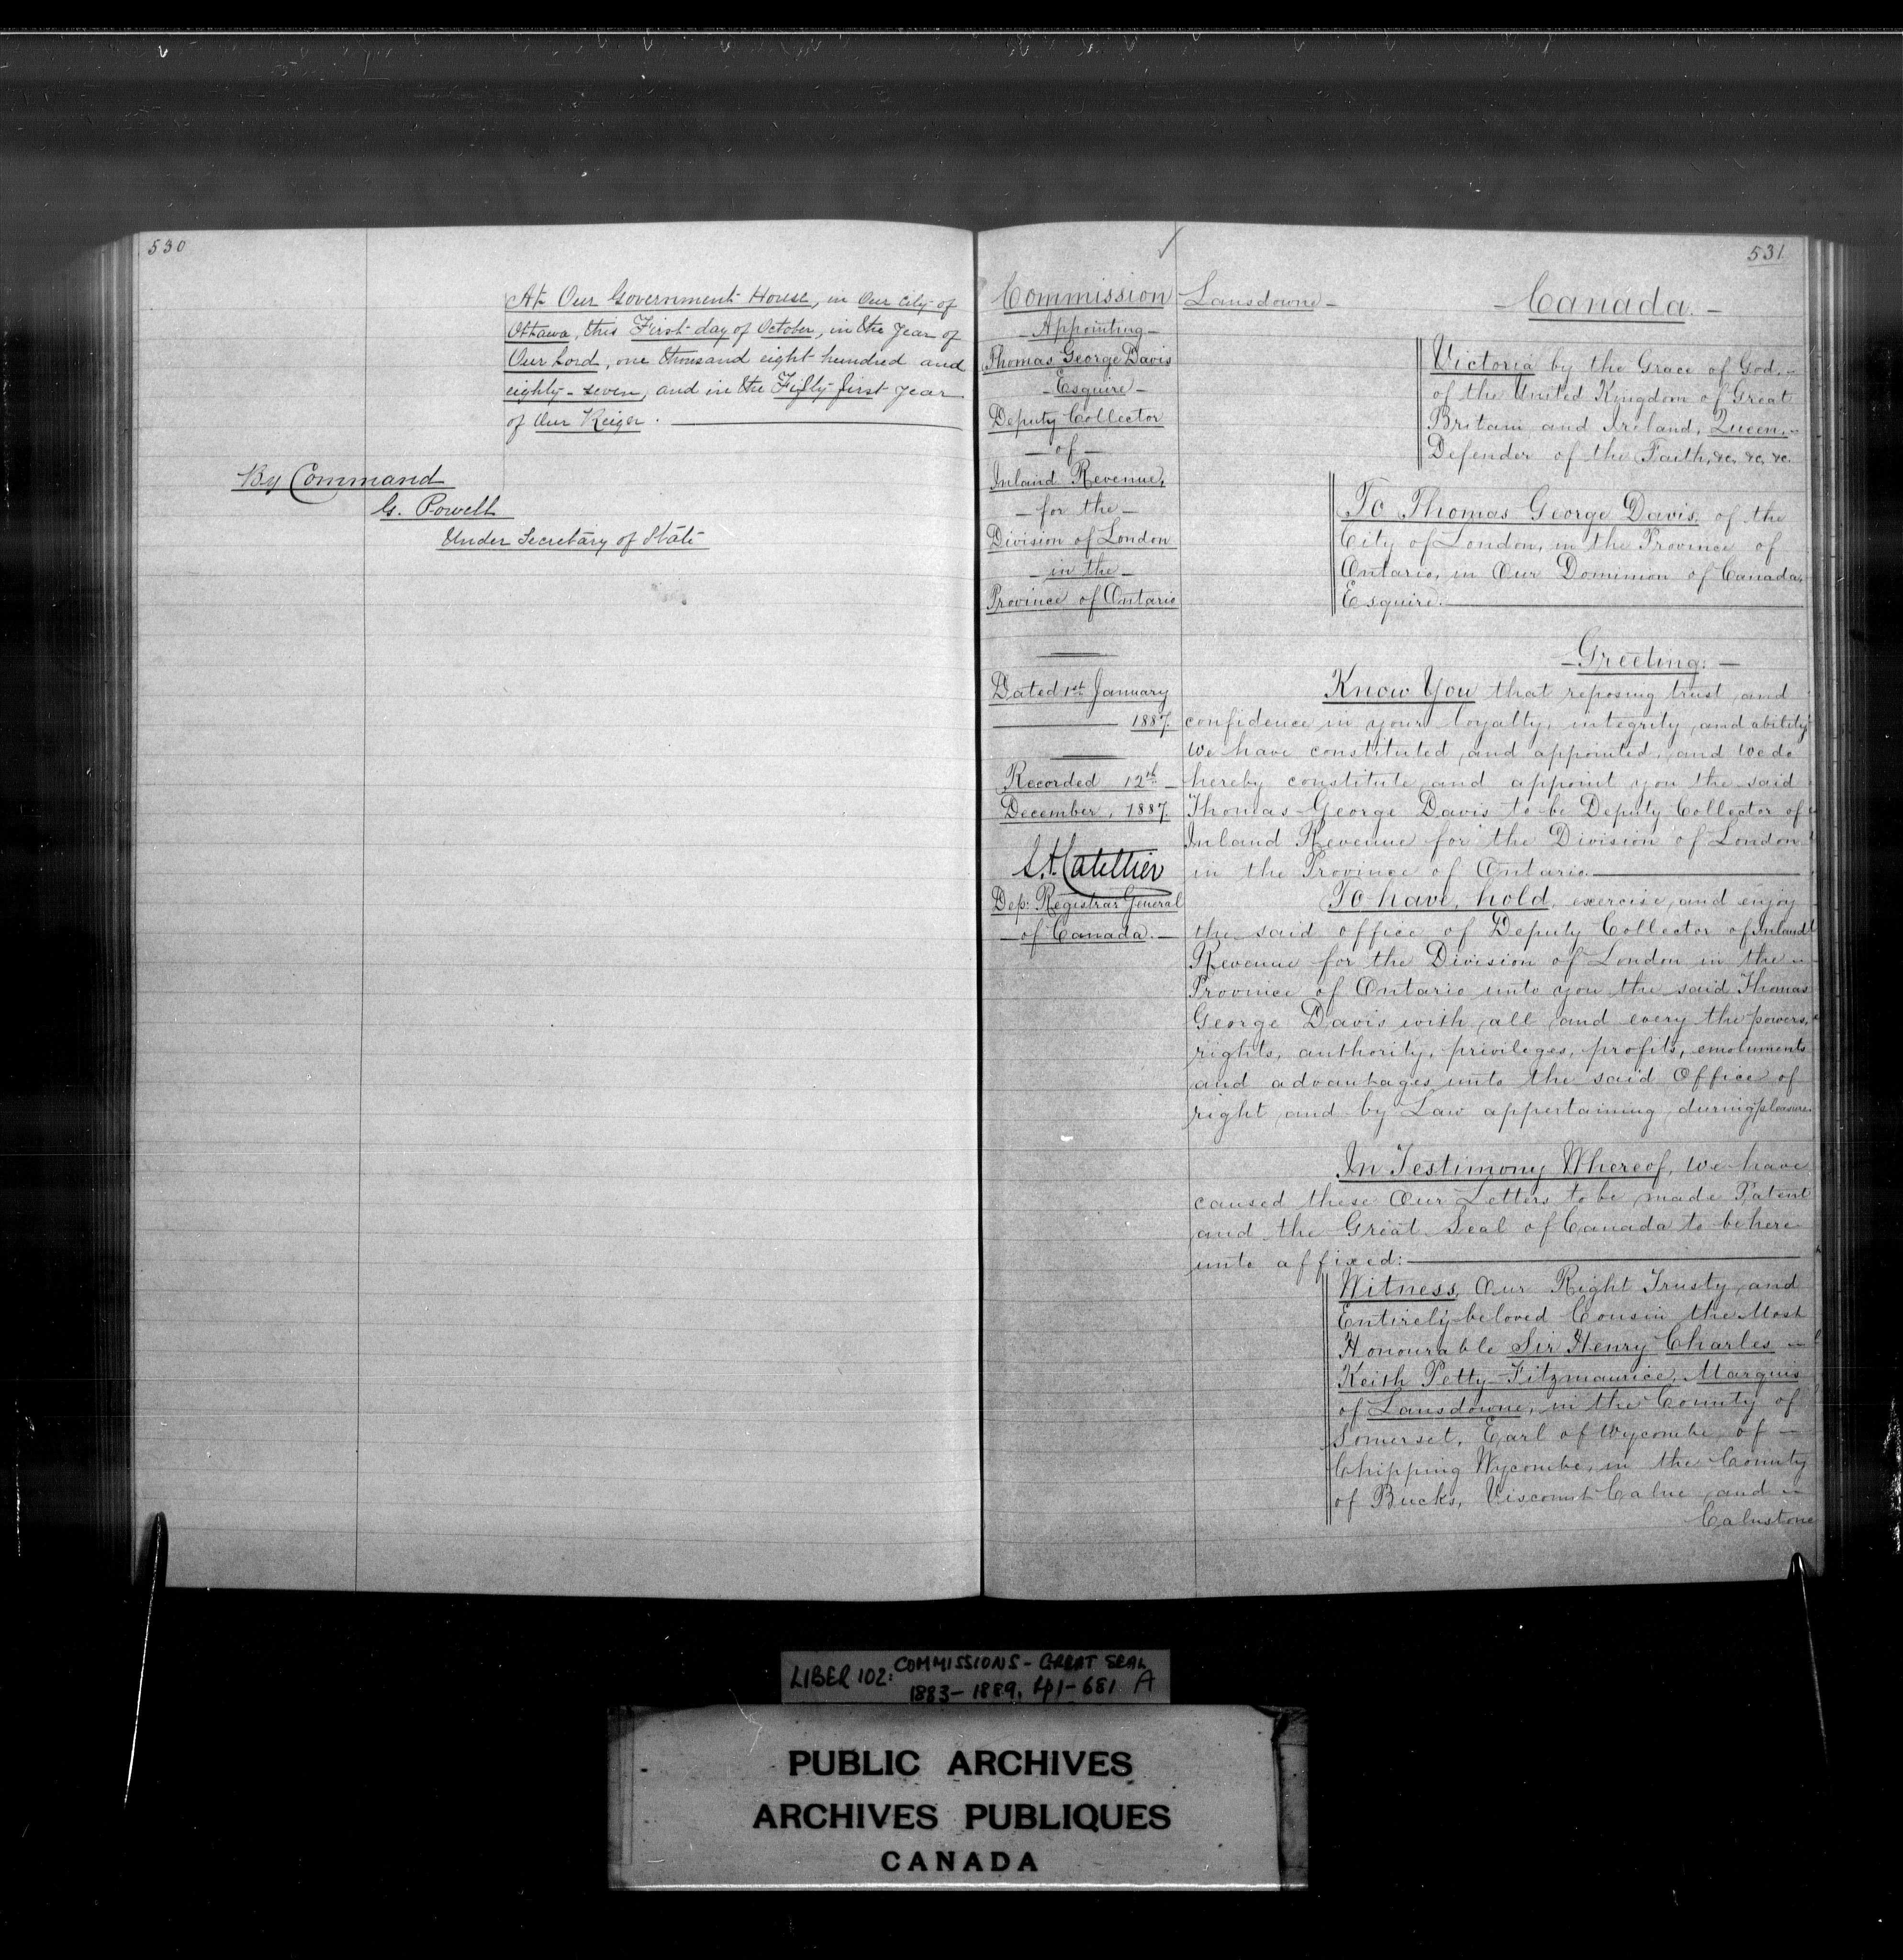 530
At Our Government House, in Our City of
Ottawa, this First day of October, in the Year of
Our Lord, one thousand eight hundred and
eighty-seven, and in the Fifty first year
of Our Reign.
By Command
G. Powell
Under Secretary of State
531
Commission
- Appointing -
Thomas George Davis
- Esquire -
Deputy Collector
- of -
Inland Revenue,
- for the -
Division of London
- in the -
Province of Ontario
Dated 1st January
1887.
Recorded 12th
December, 1887.
Dep: Registrar General
- of Canada. -
Lansdowne -
- Canada. -
Victoria by the Grace of God, -
of the United Kingdom of Great
Britain and Ireland, Queen, -
Defender of the Faith, &c, &c, &c.
To Thomas George Davis, of the
City of London, in the Province of
Ontario, in Our Dominion of Canada,
Esquire.
- Greeting: -
Know You that reposing trust and
confidence in your loyalty, integrity, and ability
We have constituted and appointed, and We do
hereby constitute and appoint you the said
Thomas George Davis to be Deputy Collector of
Inland Revenue for the Division of London
in the Province of Ontario
To have, hold, exercise, and enjoy
the said office of Deputy Collector of Inland
Revenue for the Division of London in the -
Province of Ontario unto you the said Thomas
George Davis with all and every the powers,
rights, authority, privileges, profits, emoluments
and advantages unto the said Office of
right and by Law appertaining during pleasure.
In Testimony Whereof, We have
caused these Our Letters to be made Patent
and the Great Seal of Canada to be here
unto affixed:
Witness, Our Right Trusty and
Entirely beloved Cousin the Most
Honourable Sir Henry Charles -
Keith Petty-Fitzmaurice, Marquis
of Lansdowne, in the County of
Somerset, Earl of Wycombe, of -
Chipping Wycombe, in the County
of Bucks, Viscount Calne and -
Calnstone
LIBER 102: COMMISSIONS - GREAT SEAL
1883-1889, pp1-681 A
PUBLIC ARCHIVES
ARCHIVES PUBLIQUES
CANADA